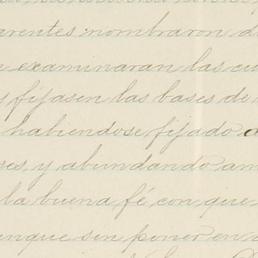 arentes nombraron d
examinaran las cu
y fijasen las bases de
habiendose fijado a
ses, y abundando am
la buena fé con que
unque sin poner en